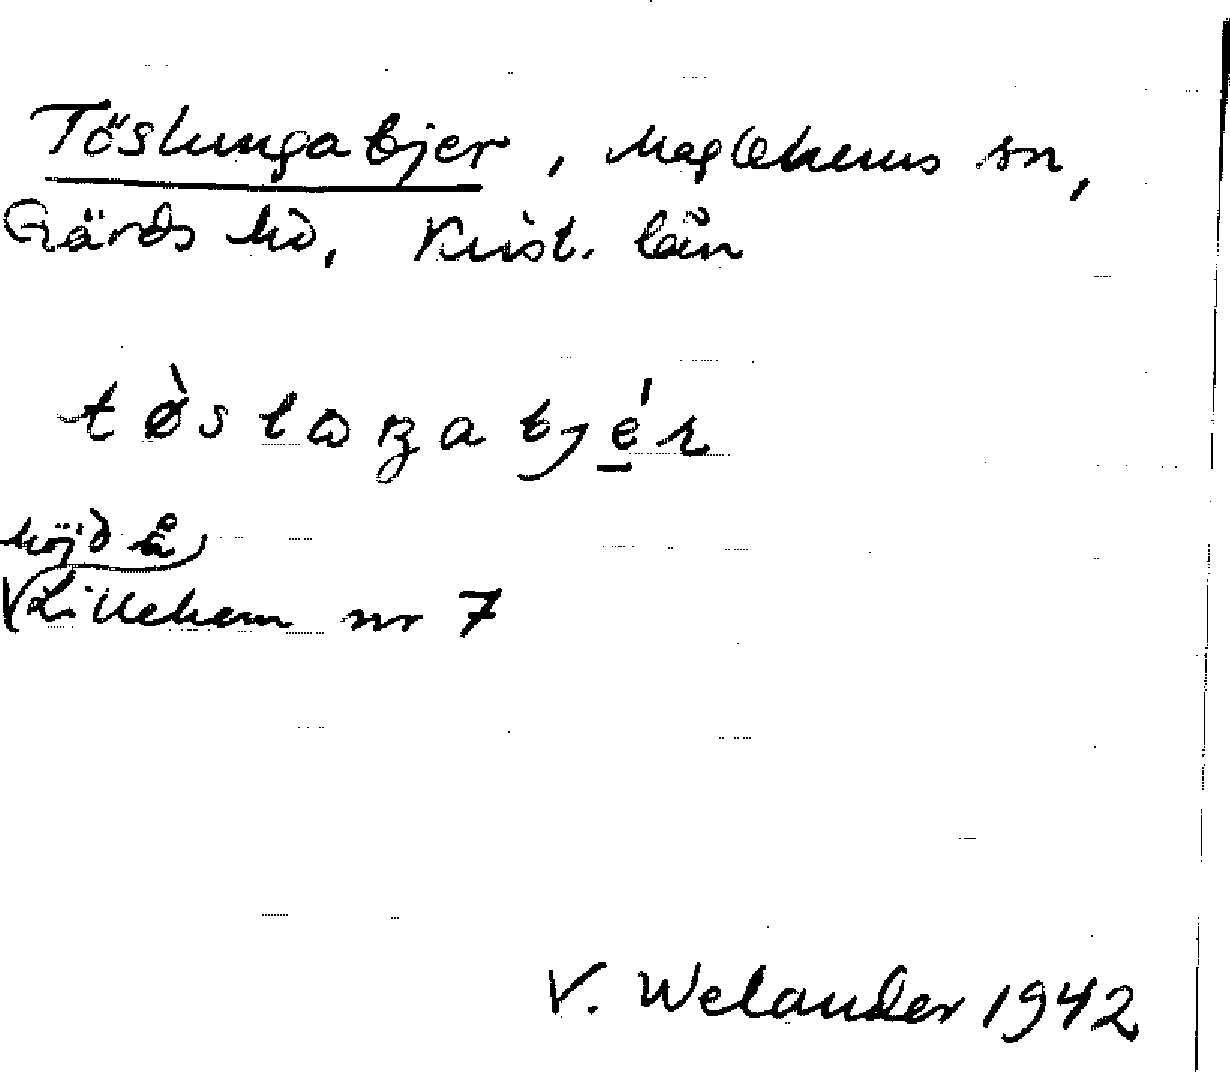 Töslungabjer, Maglehems sn,
Gärds hd, Krist. län
tø̀slɷŋabjér
höjd å
Lillehem nr 7
V. Welander 1942